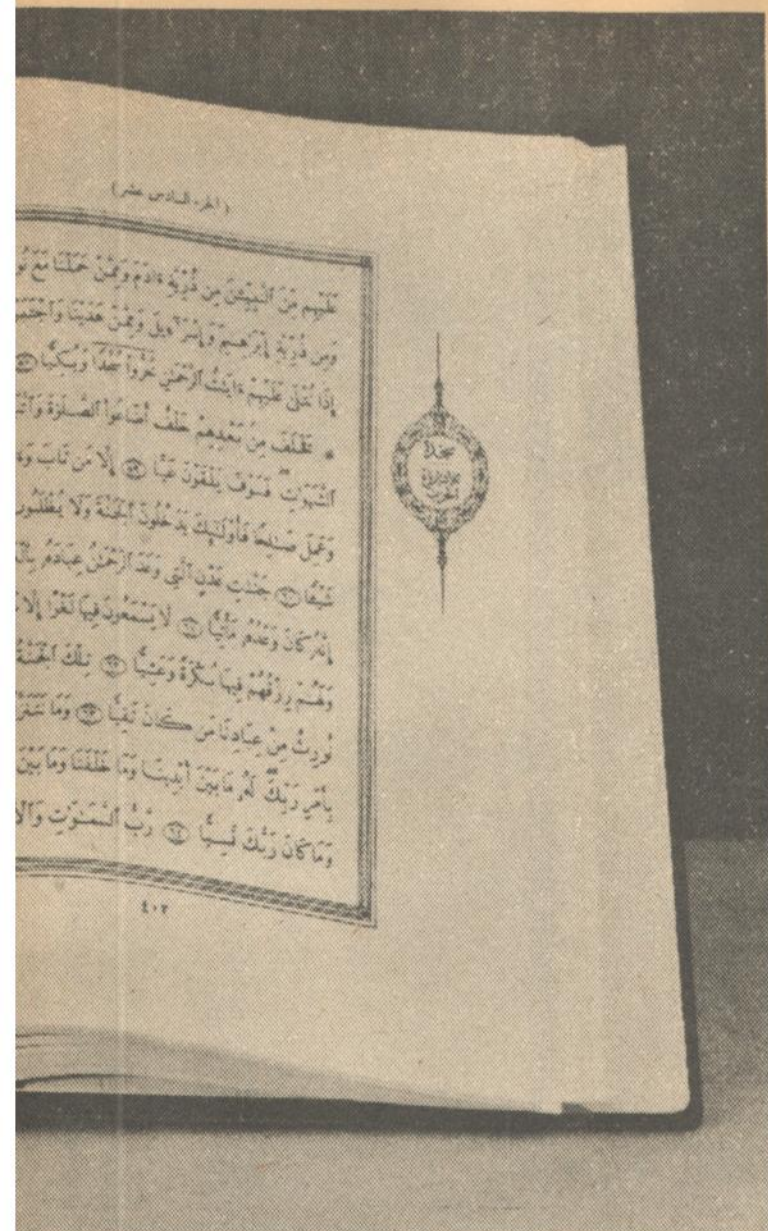 (الجزء السادس عشر)
عَلَيْهِم مِّنَ ٱلنَّبِيِّـۧنَ مِن ذُرِّيَّةِ ءَادَمَ وَمِمَّنْ حَمَلْنَا مَعَ
وَمِن ذُرِّيَّةِ إِبْرَٰهِيمَ وَإِسْرَٰٓءِيلَ وَمِمَّنْ هَدَيْنَا
إِذَا تُتْلَىٰ عَلَيْهِمْ ءَايَٰتُ ٱلرَّحْمَٰنِ خَرُّوا۟ سُجَّدًا وَبُكِيًّا
* فَخَلَفَ مِنۢ بَعْدِهِمْ خَلْفٌ أَضَاعُوا۟ ٱلصَّلَوٰةَ
ٱلشَّهَوَٰتِ فَسَوْفَ يَلْقَوْنَ غَيًّا ٥٩ إِلَّا مَن تَابَ
وَعَمِلَ صَٰلِحًا فَأُو۟لَٰٓئِكَ يَدْخُلُونَ ٱلْجَنَّةَ وَلَا
شَيْـًٔا ٦٠ جَنَّٰتِ عَدْنٍ ٱلَّتِى وَعَدَ ٱلرَّحْمَٰنُ عِبَادَهُۥ
إِنَّهُۥ كَانَ وَعْدُهُۥ مَأْتِيًّا ٦١ لَّا يَسْمَعُونَ فِيهَا لَغْوًا إِلَّا
وَلَهُمْ رِزْقُهُمْ فِيهَا بُكْرَةً وَعَشِيًّا ٦٢ تِلْكَ ٱلْجَنَّةُ
نُورِثُ مِنْ عِبَادِنَا مَن كَانَ تَقِيًّا ٦٣ وَمَا
بِأَمْرِ رَبِّكَ لَهُۥ مَا بَيْنَ أَيْدِينَا وَمَا خَلْفَنَا وَمَا بَيْنَ
وَمَا كَانَ رَبُّكَ نَسِيًّا ٦٤ رَّبُّ ٱلسَّمَٰوَٰتِ
سجدة
٤٠٢